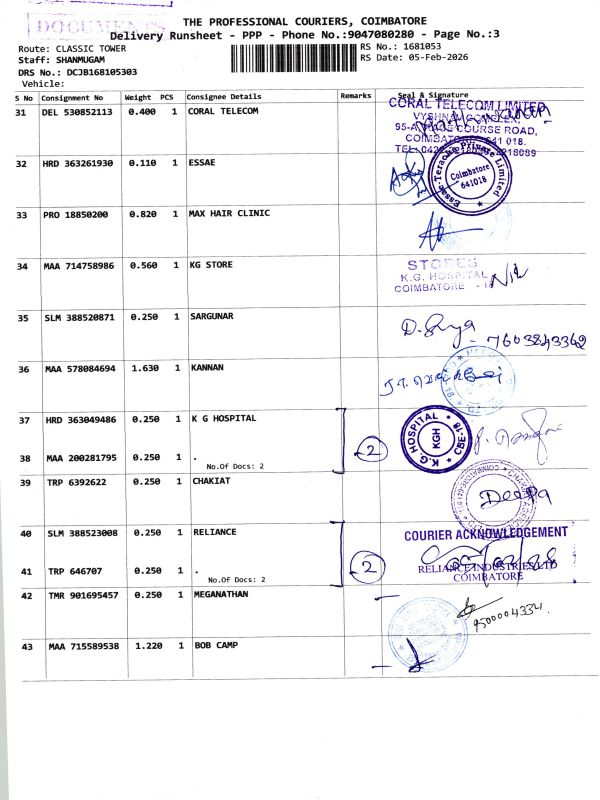 DOCUMENTS
THE PROFESSIONAL COURIERS, COIMBATORE
Delivery Runsheet - PPP - Phone No.:9047080280 - Page No.:3
Route: CLASSIC TOWER
RS No.: 1681053
Staff: SHANMUGAM
RS Date: 05-Feb-2026
DRS No.: DCJB168105303
Vehicle:
S No Consignment No Weight PCS Consignee Details Remarks Seal & Signature
31 DEL 530852113 0.400 1 CORAL TELECOM
CORAL TELECOM LIMITED
COURSE ROAD,
32 HRD 363261930 0.110 1 ESSAE
Essae-Teraoka Private Limited
Coimbatore
641018
33 PRO 18850200 0.820 1 MAX HAIR CLINIC
34 MAA 714758986 0.560 1 KG STORE
STORES
K.G. HOSPITAL
COIMBATORE
35 SLM 388520871 0.250 1 SARGUNAR
7603843362
36 MAA 578084694 1.630 1 KANNAN
37 HRD 363049486 0.250 1 K G HOSPITAL
2
K.G. HOSPITAL
KGH
CBE-18
38 MAA 200281795 0.250 1 .
No.Of Docs: 2
39 TRP 6392622 0.250 1 CHAKIAT
Deepa
40 SLM 388523008 0.250 1 RELIANCE
COURIER ACKNOWLEDGEMENT
41 TRP 646707 0.250 1 .
2
RELIANCE INDUSTRIES LTD
COIMBATORE
No.Of Docs: 2
42 TMR 901695457 0.250 1 MEGANATHAN
9500004334
43 MAA 715589538 1.220 1 BOB CAMP